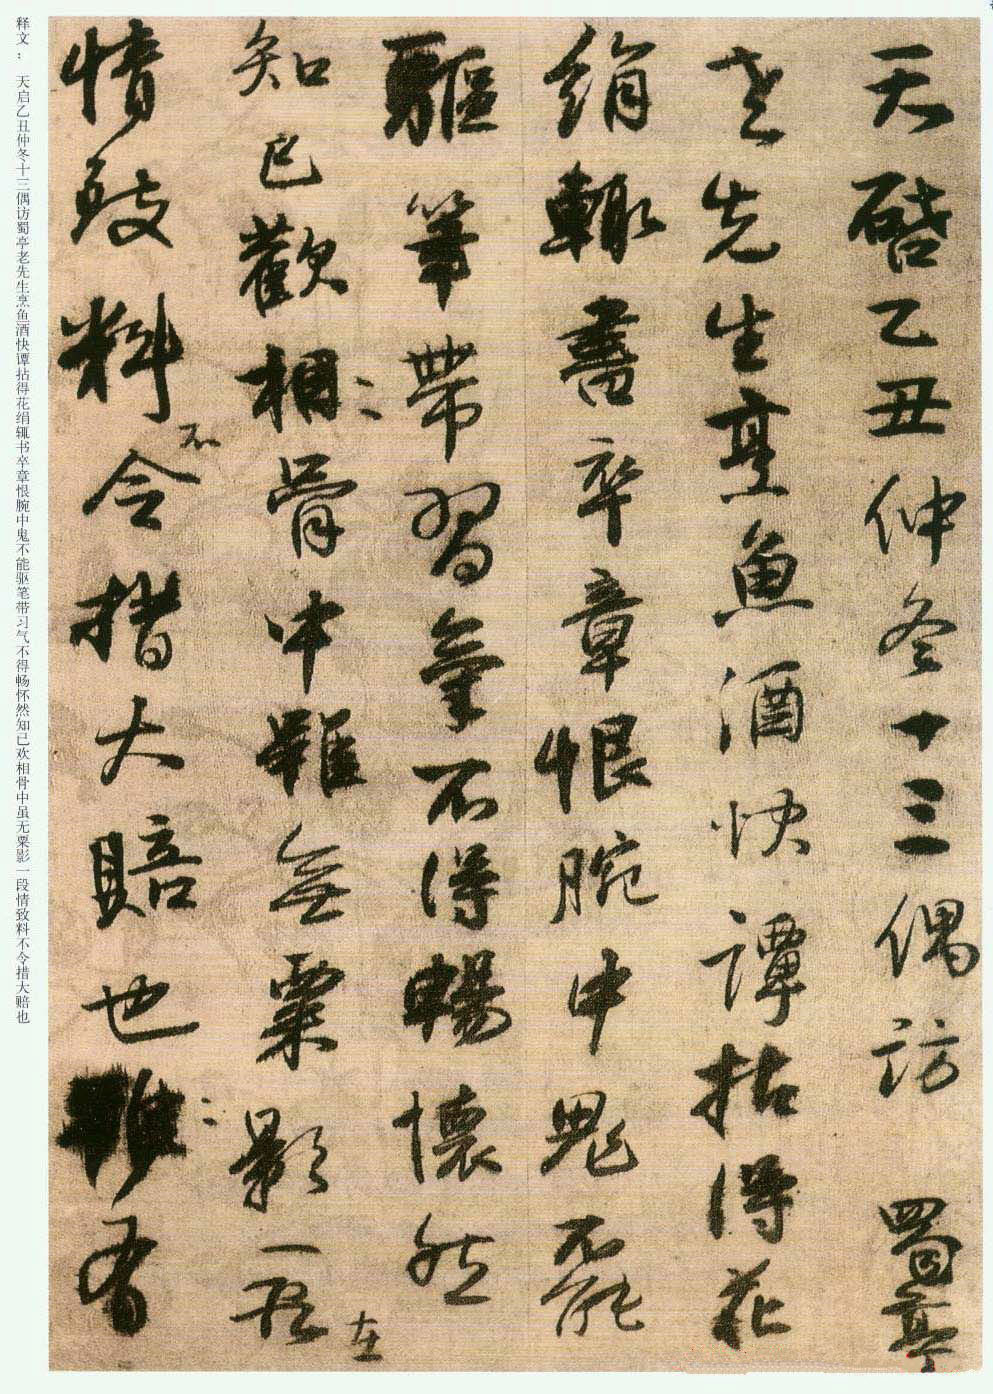 天啟乙丑仲冬十三偶訪 蜀亭
老先生烹魚酒快譚拈得花
絹輙書卒章恨腕中鬼不能
驅筆帶習氣不得暢懷然
知已歡相骨中雖無粟影一段
情致料不令措大賠也有
释文： 天启乙丑仲冬十三偶访蜀亭老先生烹鱼酒快谭拈得花绢辄书卒章恨腕中鬼不能驱笔带习气不得畅怀然知已欢相骨中虽无粟影一段情致料不令措大赔也